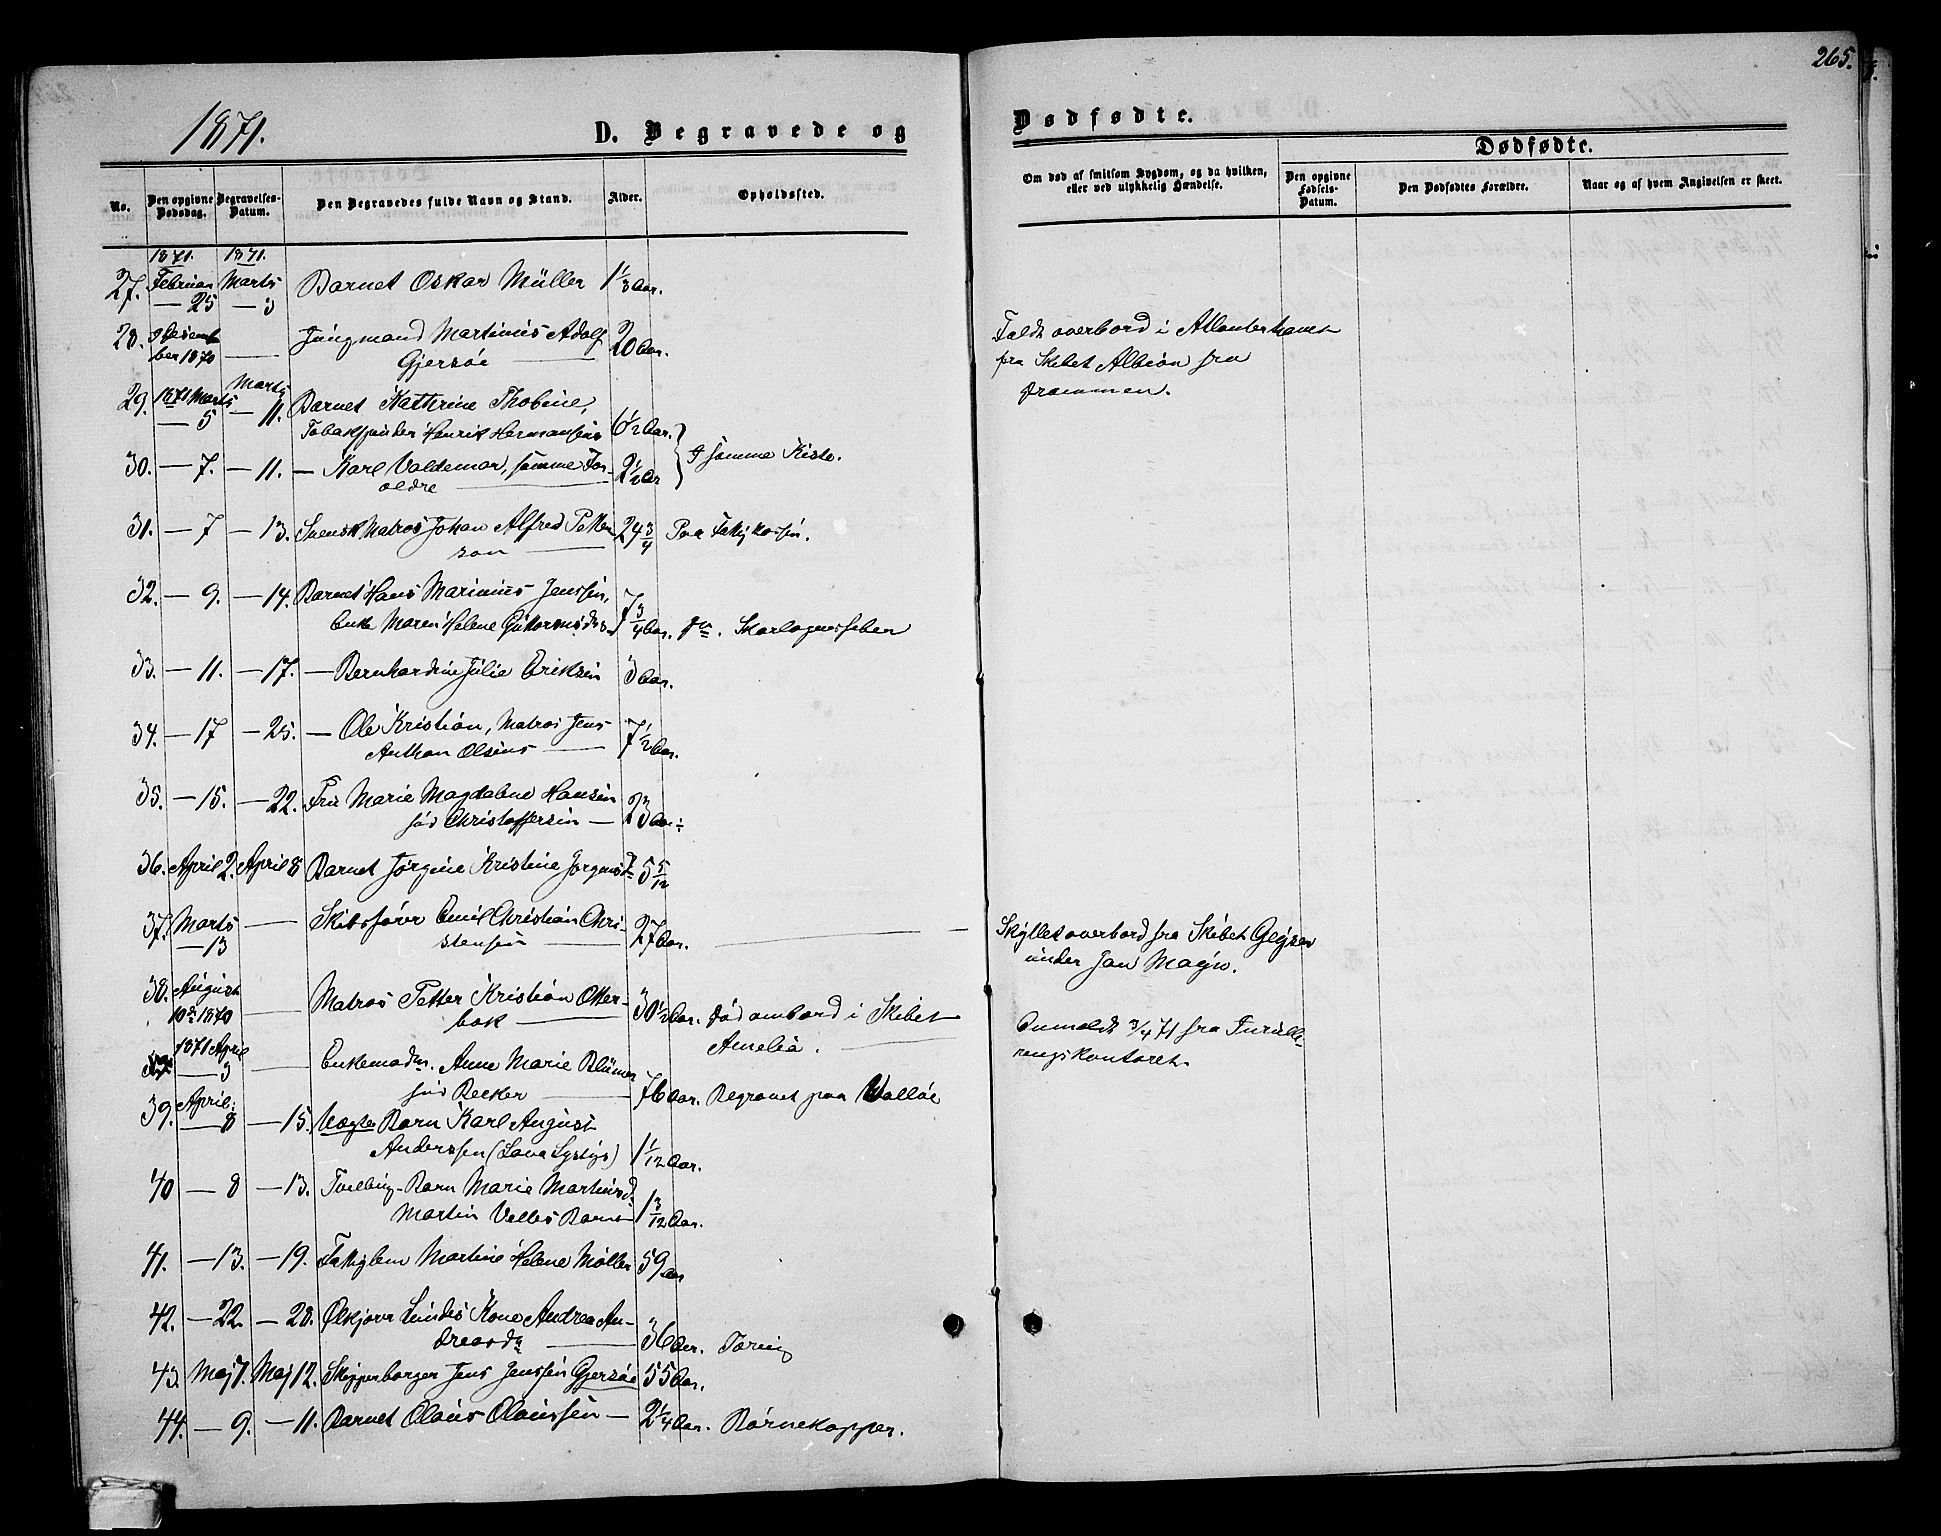 265.
1871.
D. Begravede og
Dødfødte.
Dødfødte.
No.
Den opgivne Dødsdag.
Begravelses-Datum.
Den Begravedes fulde Navn og Stand.
Alder.
Opholdssted.
Om død af smitsom Sygdom, og da hvilken, eller ved ulykkelig Hændelse.
Den opgivne Fødsels-Datum.
Den Dødfødtes Forældre.
Naar og af hvem Angivelsen er skeet.
1871. 1871.
27. Februar Marts Barnet Oskar Müller 1 1/3 Aar.
— 25 — 3
28. Desem- Jungmand Martinius Adolf 20 Aar. Faldt overbord i Atlanterhavet
ber 1870 — Gjersøe — fra Skibet Albion fra
Drammen.
29. 1871 Marts Marts Barnet Kathrine Thobine,
— 5 — 11. Tobakspinder Henrik Hermansens 6 1/2 Aar.
I samme Kiste.
30. — 7. — 11. — Karl Valdemar, samme For- 2 1/2 Ar
ældre —
31. — 7 — 13. Svensk Matros Johan Alfred Petter 24 3/4 Paa Fattigkassen.
son —
32. — 9. — 14. Barnet Hans Marinius Jenssen,
Enke Maren Helene Guttormsdrs. 7 3/4 Aar. Skarlagensfeber
33. — 11. — 17. — Bernhardine Julie Eriksen 3 Aar.
34. — 17 — 25. — Ole Kristian, Matros Jens
Anthon Olsens — 7 1/2 Aar.
35. — 15. — 22. Fru Marie Magdalene Hansen
fød Christoffersen — 23 Aar.
36. April 2. April 8 Barnet Jørgine Kristine Jørgensd 5 5/12
37. Marts — Skibsfører Emil Christian Chri- 27 Aar. — Skyllet overbord fra Skibet Geyser
— 13 stensen — under Jan Mayn.
38. August — Matros Petter Kristian Otter- 30 1/2 Aar. Død ombord i Skibet
10de 1870 bak — Amelia. — Anmeldt 3/4 71 fra Inrulle-
ringskontoret.
1871 April
— 3 — Enkemadm. Anne Marie Blümer
fød Becker — 76 Aar. Begravet paa Valløe
39. April:
— 8 — 15. Uægte Barn Karl August
Anderssen 1 1/12 Aar.
40 — 8 — 13. Tvilling-Barn Marie Martinsd.
Martin Velles Barn 1 3/12 Aar.
41. — 13. — 19. Fattiglem Martine Helene Møller 59 Aar
42. — 22. — 28. Ølkjører Lundes Kone Andrea An-
dreasdr — 36 Aar. Tæring
43. Maj 7. Maj 12. Skipperborger Jens Jenssen Gjersøe 55 Aar.
44. — 9. — 11. Barnet Olaus Olaussen — 2 1/4 Aar. Børnekopper.